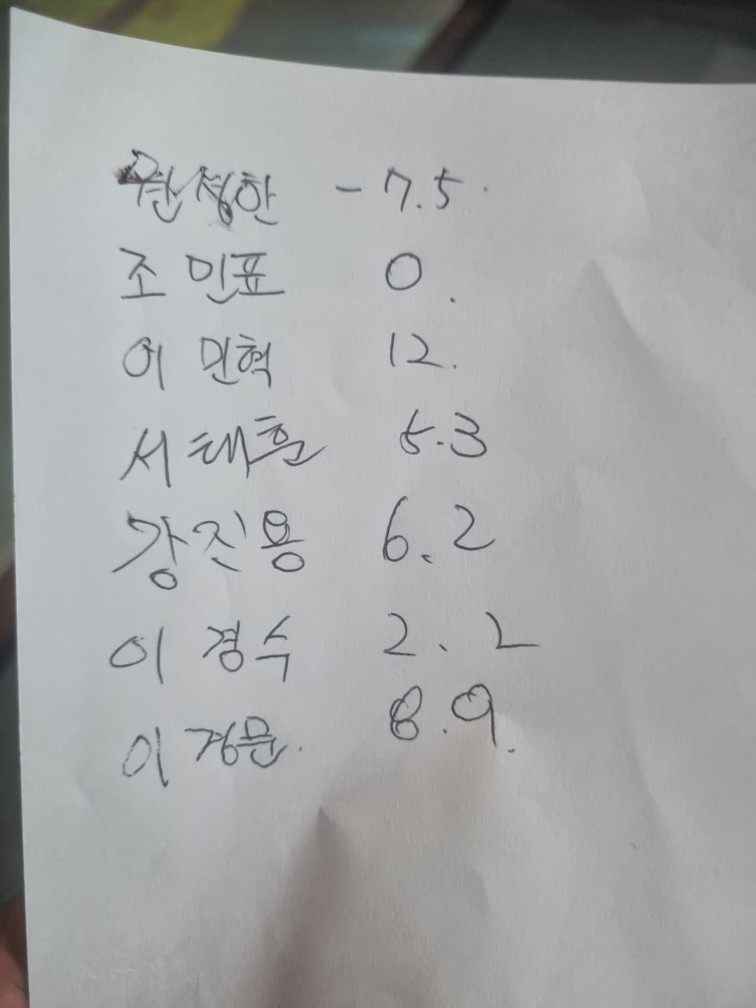 권성한 - 7.5
조민표 0.
이민혁 12.
서태훈 5.3
강진용 6.2
이경수 2.2
이경문. 8.9.